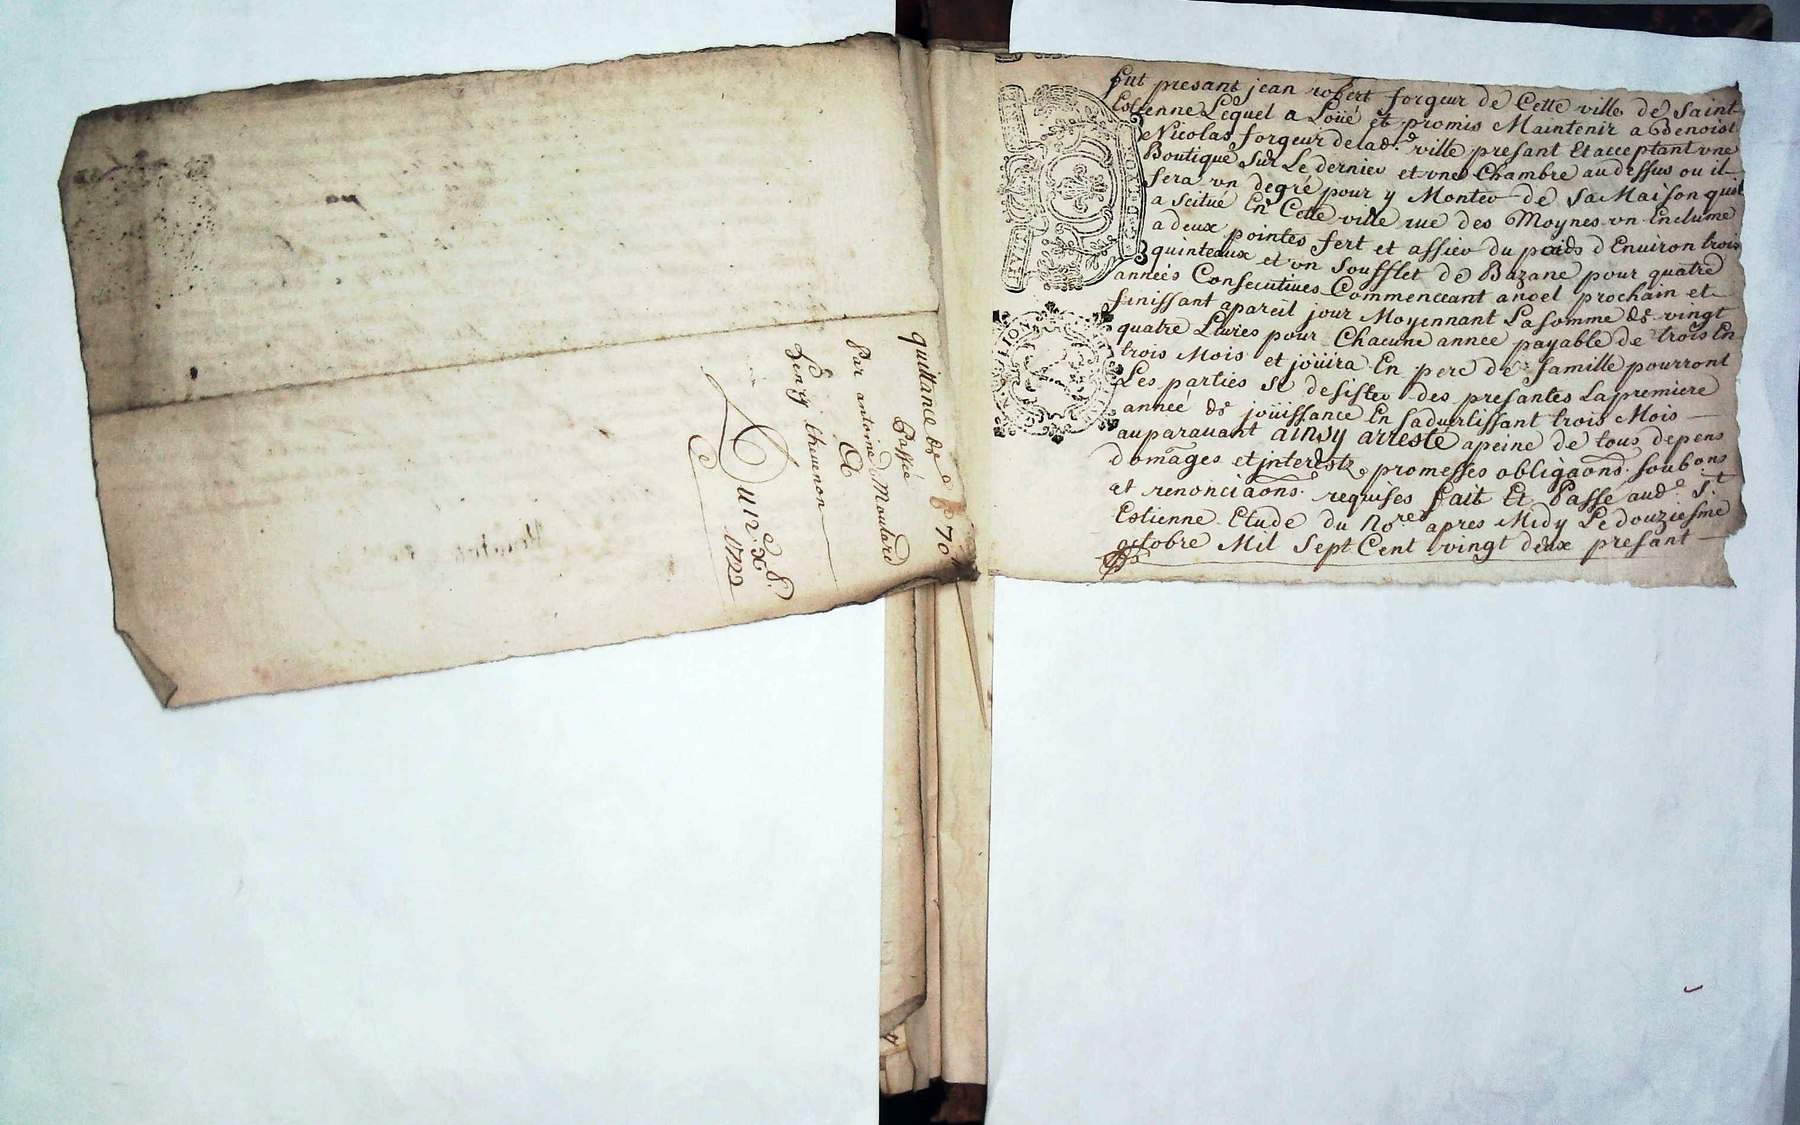 quittance de 70
Passée
Par antoine Moulard
A
henry thevenon
Du xe 8.
1722
fut presant jean robert forgeur de Cette ville de Saint
Estienne Lequel a Loüé et promis Maintenir a Benoist
Nicolas forgeur de lad.e ville presant Et acceptant vne
Boutique sur Le dernier et vne Chambre au dessus ou il
fera vn degré pour y Monter de sa Maison quil
a scitué En Cette ville rue des Moynes vn Enclume
a deux pointes fert et assiev du poids d'Enuiron trois
quinteaux et vn soufflet de Bazane pour quatre
années Consecutiues Commenceant a noel prochain et
finissant a pareil jour Moyennant La somme de vingt
quatre Livres pour Chacune année payable de trois En
trois Mois et joüira En pere de famille pourront
Les parties se desister des presantes La premiere
année de joüissance En sadvertissant trois Mois
auparauant ainsy arresté a peine de tous depens
domages et jnterestz, promesses obligaons. soubons
et renonciaons. requises fait Et Passé aud. St
Estienne Etude du Nore apres Midy Le douziesme
octobre Mil Sept Cent vingt deux presant